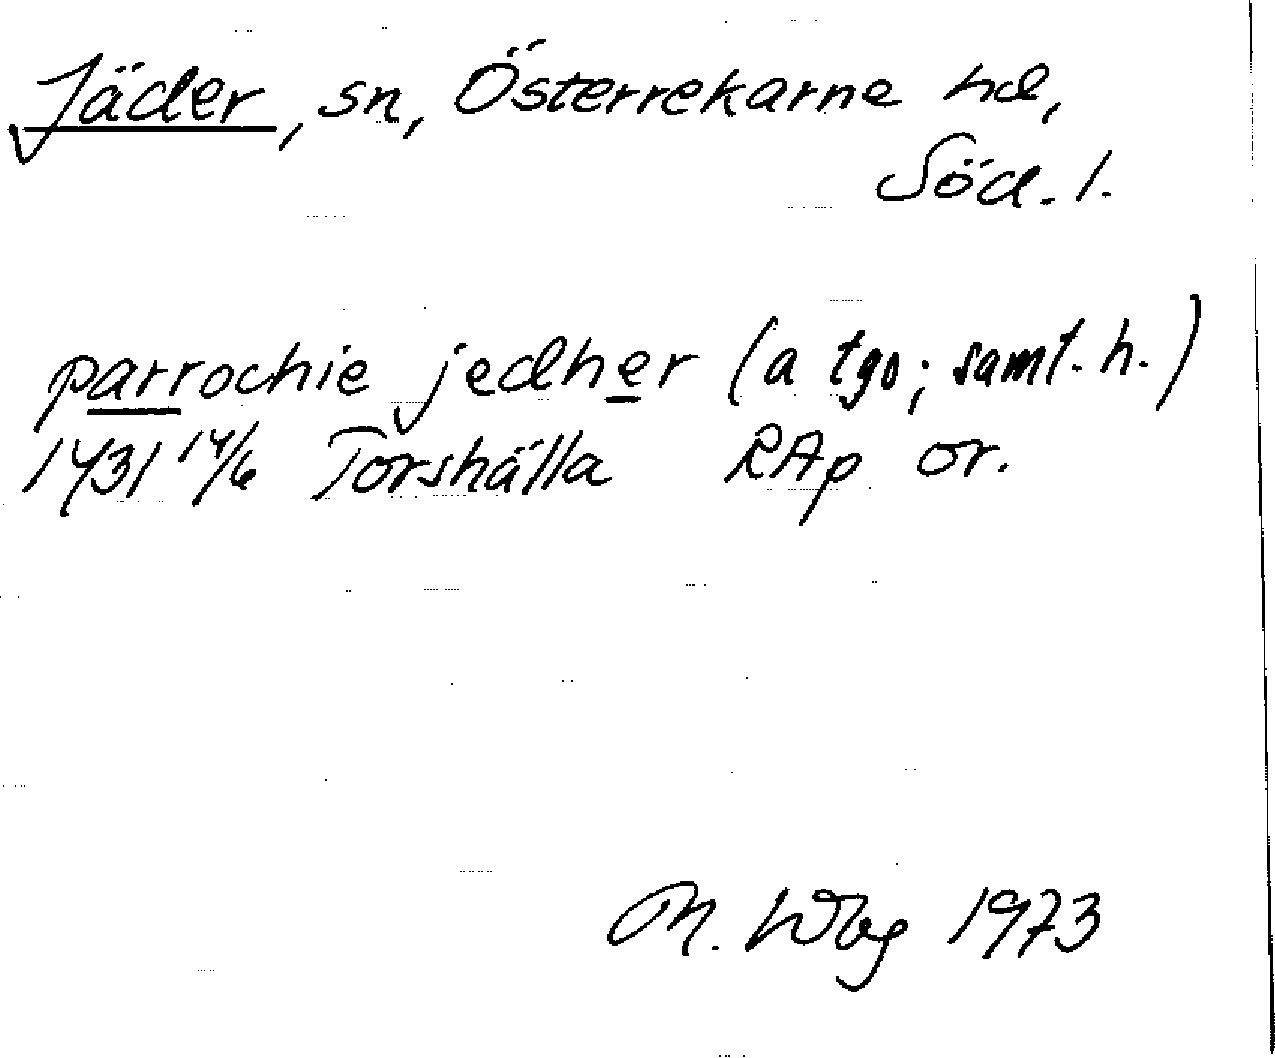 Jäder, sn, Österrekarne hd,
Söd. l.
parrochie jedher (a tgo; samt. h.)
1431 14/6 Torshälla RAp or.
M. Wbg 1973